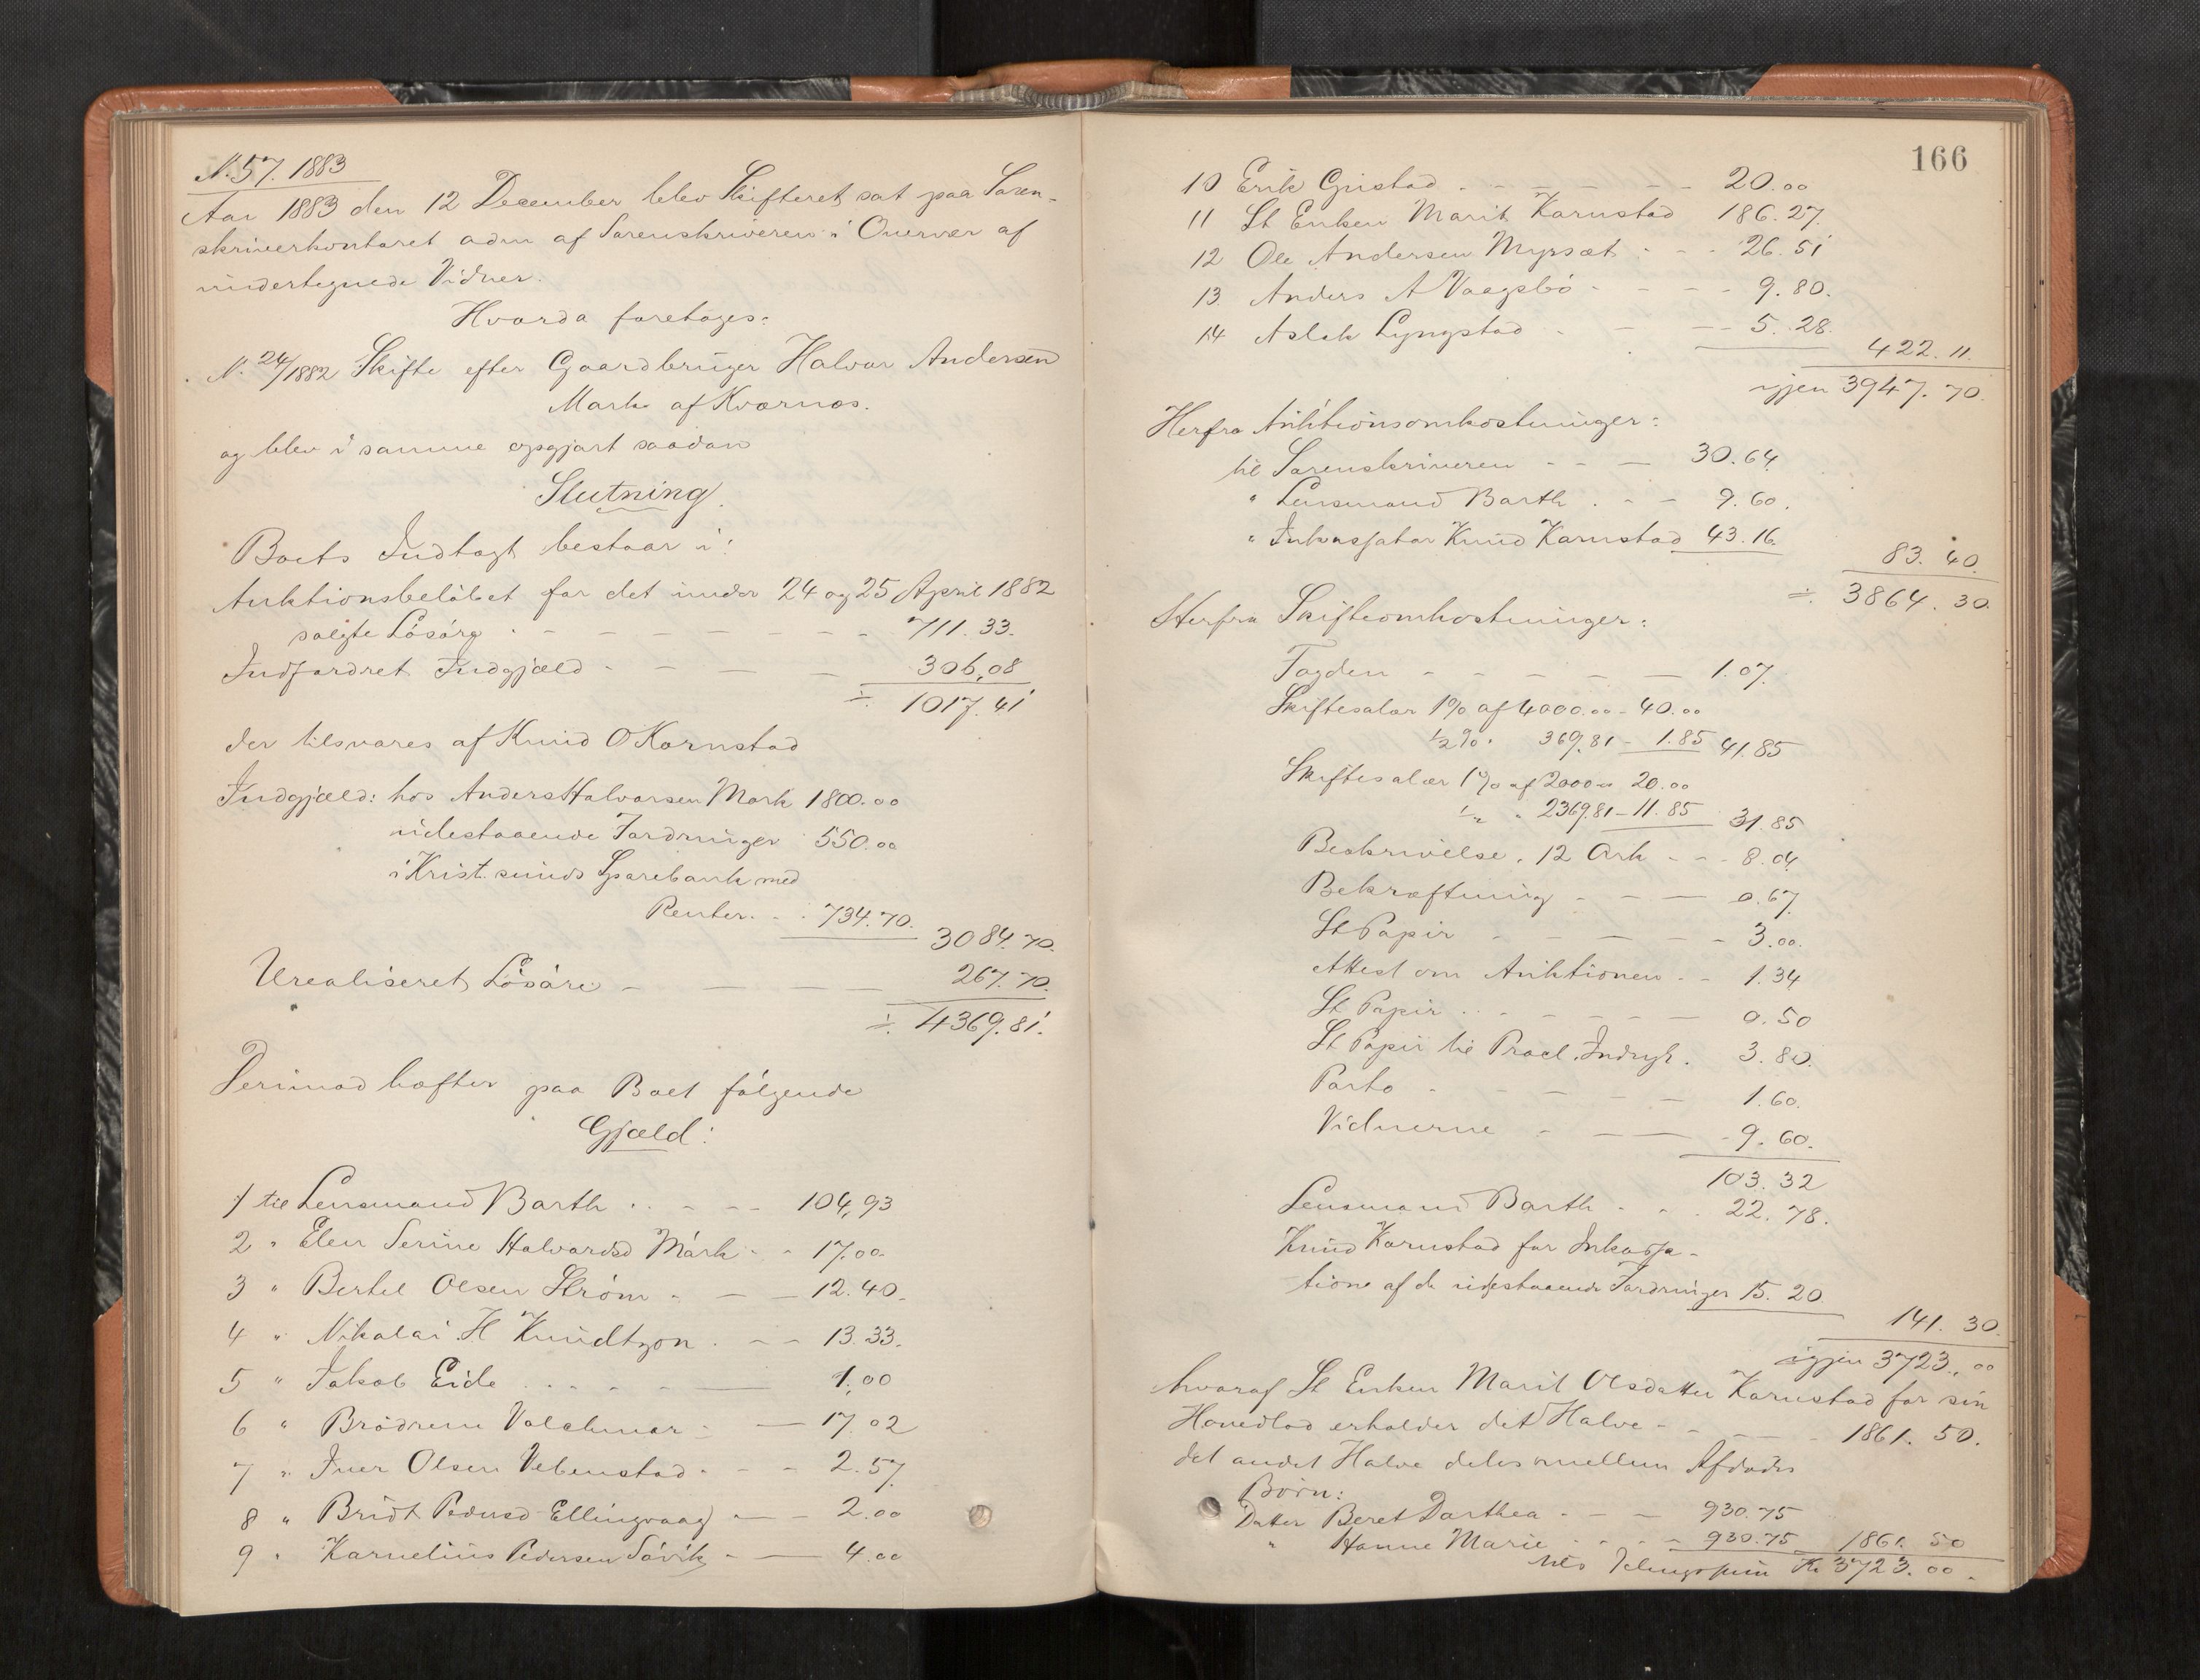 N. 57. 1883
Aar 1883 den 12 December blev Skifteret sat paa Soren-
skriverkontoret adm af Sorenskriveren i Overvær af
undertegnede Vidner.
Hvorda foretoges:
N. 24/1882 Skifte efter Gaardbruger Halvor Andersen
Mark af Kværnæs.
og blev i samme opgjort saadan
Slutning.
Boets Indtægt bestaar i:
Auktionsbeløbet for det under 24 og 25 April 1882
solgte Løsøre - - - 711.33.
Indfordret Indgjæld - - - 306,08
÷. 1017.41
der tilsvares af Knud O Kornstad
Indgjæld: hos Anders Halvorsen Mark 1800.00
udestaaende Fordringer 550.00
i Krist.sunds Sparebank med
Renter - - 734.70. 3084.70.
Urealiseret Løsøre - - - 267.70.
÷. 4369.81.
Derimod hæfter paa Boet følgende
Gjæld:
1/ til Lensmand Barth - - 104,93
2 " Elen Serine Halvorsd Mark - - 17.00.
3 " Bertel Olsen Strøm - - 12.40.
4 " Nikolai H Knudtzon - - 13.33.
5 " Jakob Eide - - - 1,00
6 " Brødrene Volckmar - - 17.02
7 " Iver Olsen Vebenstad - - 2.57.
8 " Bridt Pedersd Ellingvaag - - 2.00
9 " Kornelius Pedersen Søvik - - 4.00
166
10 Erik Gristad - - - 20.00
11 St Enken Marit Kornstad 186.27.
12 Ole Andersen Myrsæt - - 26.51
13 Anders A Vaagsbø - - 9.80.
14 Aslak Lyngstad - - 5.28.
422.11.
igjen 3947.70.
Herfra Auktionsomkostninger:
til Sorenskriveren - - 30.64.
" Lensmand Barth - - 9.60.
" Inkassator Knud Kornstad 43.16.
83.40.
÷. 3864.30.
Herfra Skifteomkostninger:
Fogden - - - 1.07.
Skiftesalær 1% af 4000.00 - 40.00
1/2 % " 369.81 - 1.85 41.85
Skiftesalær 1% af 2000 - 20.00
1/2 " " 2369.81 - 11.85 31.85
Beskrivelse, 12 Ark - - 8.04
Bekræftning - - 0.67.
St Papir - - - 3.00.
Attest om Auktionen - - 1.34
St Papir - - - 0.50
St Papir til Procl. Indryk. 3.80.
Porto - - - 1.60.
Vidnerne - - - 9.60.
103.32
Lensmand Barth - - 22.78.
Knud Kornstad for Inkassa-
tione af de udestaaende Fordringer 15.20.
141.30.
igjen 3723.,00
hvoraf St Enken Marit Olsdatter Kornstad for sin
Hovedlod erholder det Halve - - - 1861.50.
det andet Halve deles mellem Afdødes
Børn:
Datter Beret Dorthea - - 930.75
" Hanne Marie - - 930.75 1861.50
Kr 3723.00.